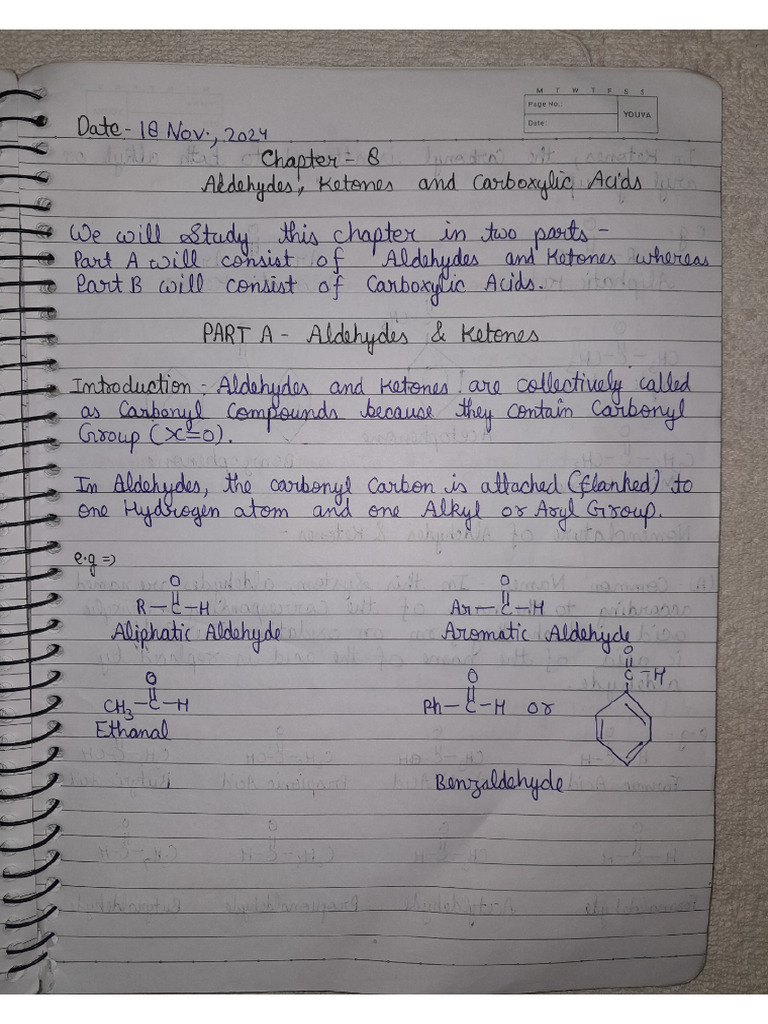 M T W T F S S
Page No.:
Date:
YOUVA
Date - 18 Nov., 2024
Chapter = 8
Aldehydes, Ketones and Carboxylic Acids
We will Study this chapter in two parts -
Part A will consist of Aldehydes and Ketones whereas
Part B will consist of Carboxylic Acids.
PART A - Aldehydes & Ketones
Introduction - Aldehydes and Ketones are collectively called
as Carbonyl Compounds because they contain Carbonyl
Group (>C=O).
In Aldehydes, the carbonyl Carbon is attached (flanked) to
one Hydrogen atom and one Alkyl or Aryl Group.
e.g =>
O O
R-C-H Ar-C-H
Aliphatic Aldehyde Aromatic Aldehyde
O O O
CH3-C-H Ph-C-H or C-H
Ethanal
Benzaldehyde